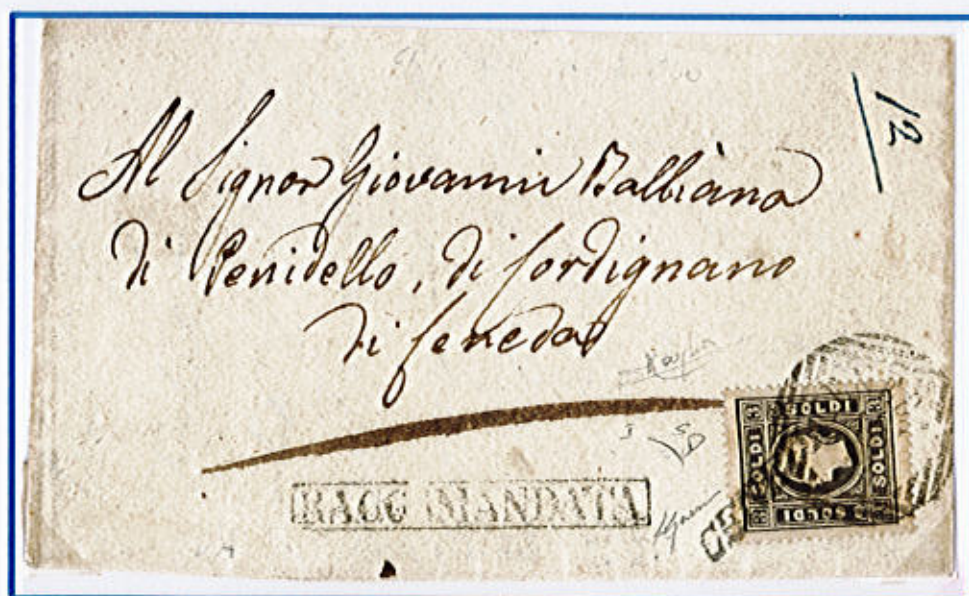 12
Al Signor Giovanni Balbiano
di Penidello, di Cordignano
di Ceneda
RACCOMANDATA
3 SOLDI 3
SOLDI
SOLDI
SOLDI